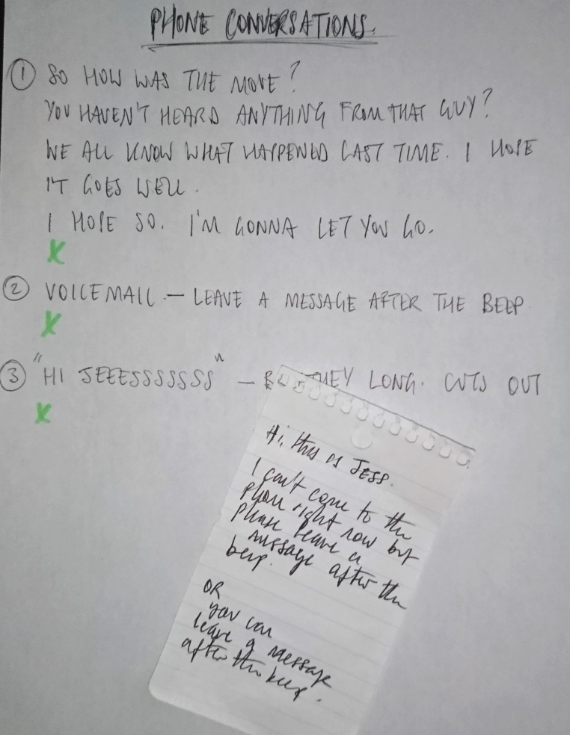 PHONE CONVERSATIONS.
① SO HOW WAS THE MOVE?
YOU HAVEN'T HEARD ANYTHING FROM THAT GUY?
WE ALL KNOW WHAT HAPPENED LAST TIME. I HOPE
IT GOES WELL.
I HOPE SO. I'M GONNA LET YOU GO.
X
② VOICEMAIL — LEAVE A MESSAGE AFTER THE BEEP
X
③ "HI JEEESSSSSSS" — LONG. CUTS OUT
X
Hi, this is JESS.
I can't come to the
phone right now but
please leave a
message after the
beep.
OR
you can
leave a message
after the beep.